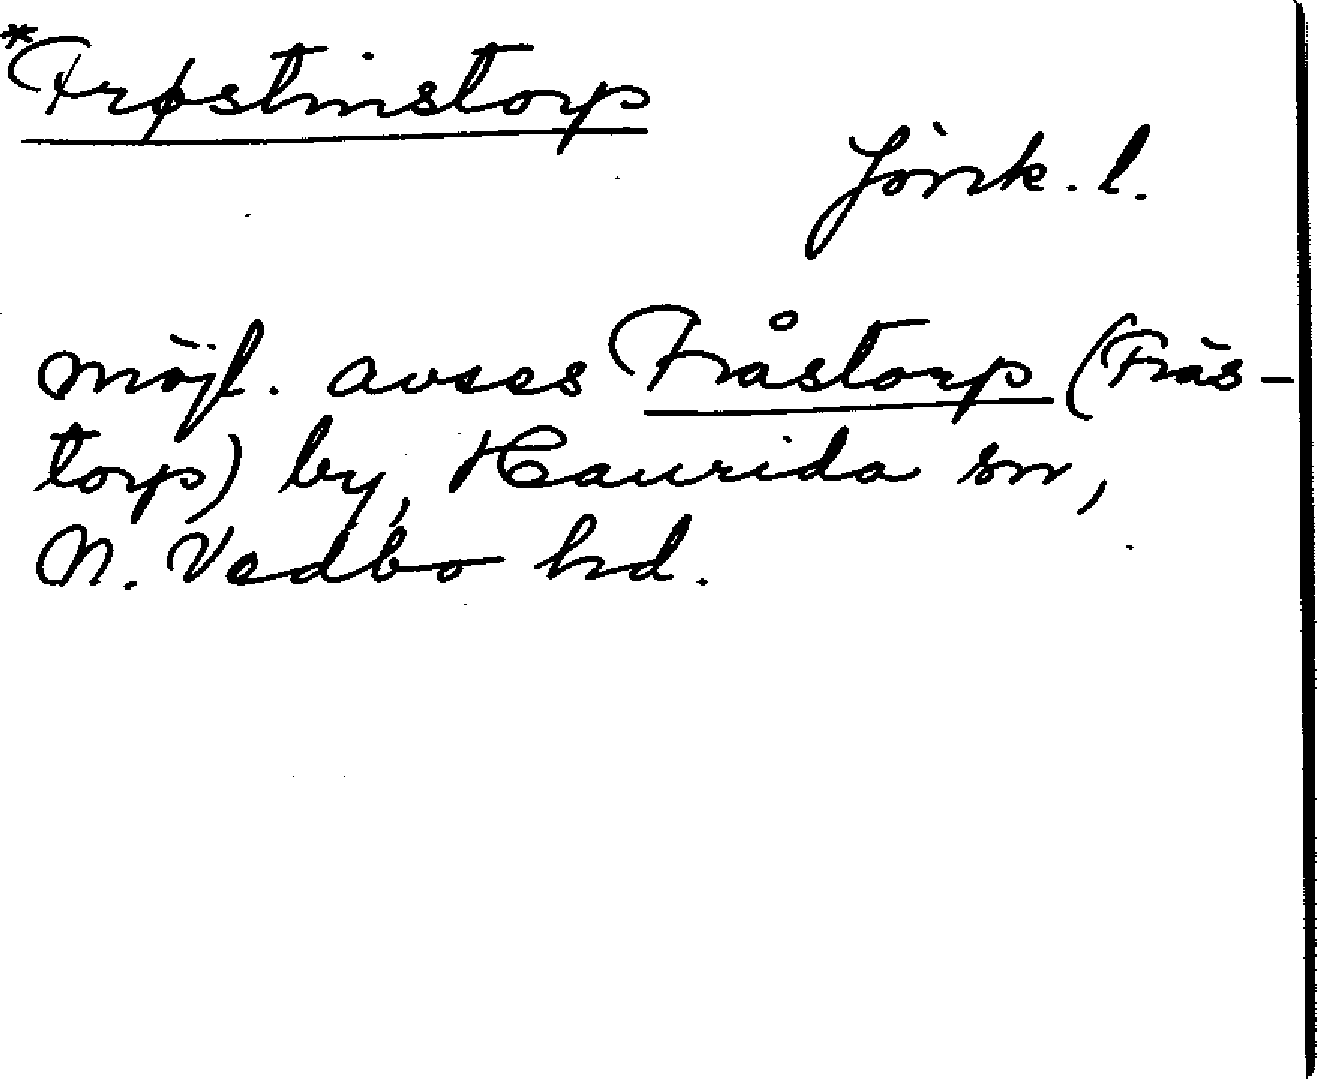 *Frøstinstorp
Jönk. l.
möjl. avses Fråstorp (Frås-
torp) by, Haurida sn,
N. Vedbo hd.